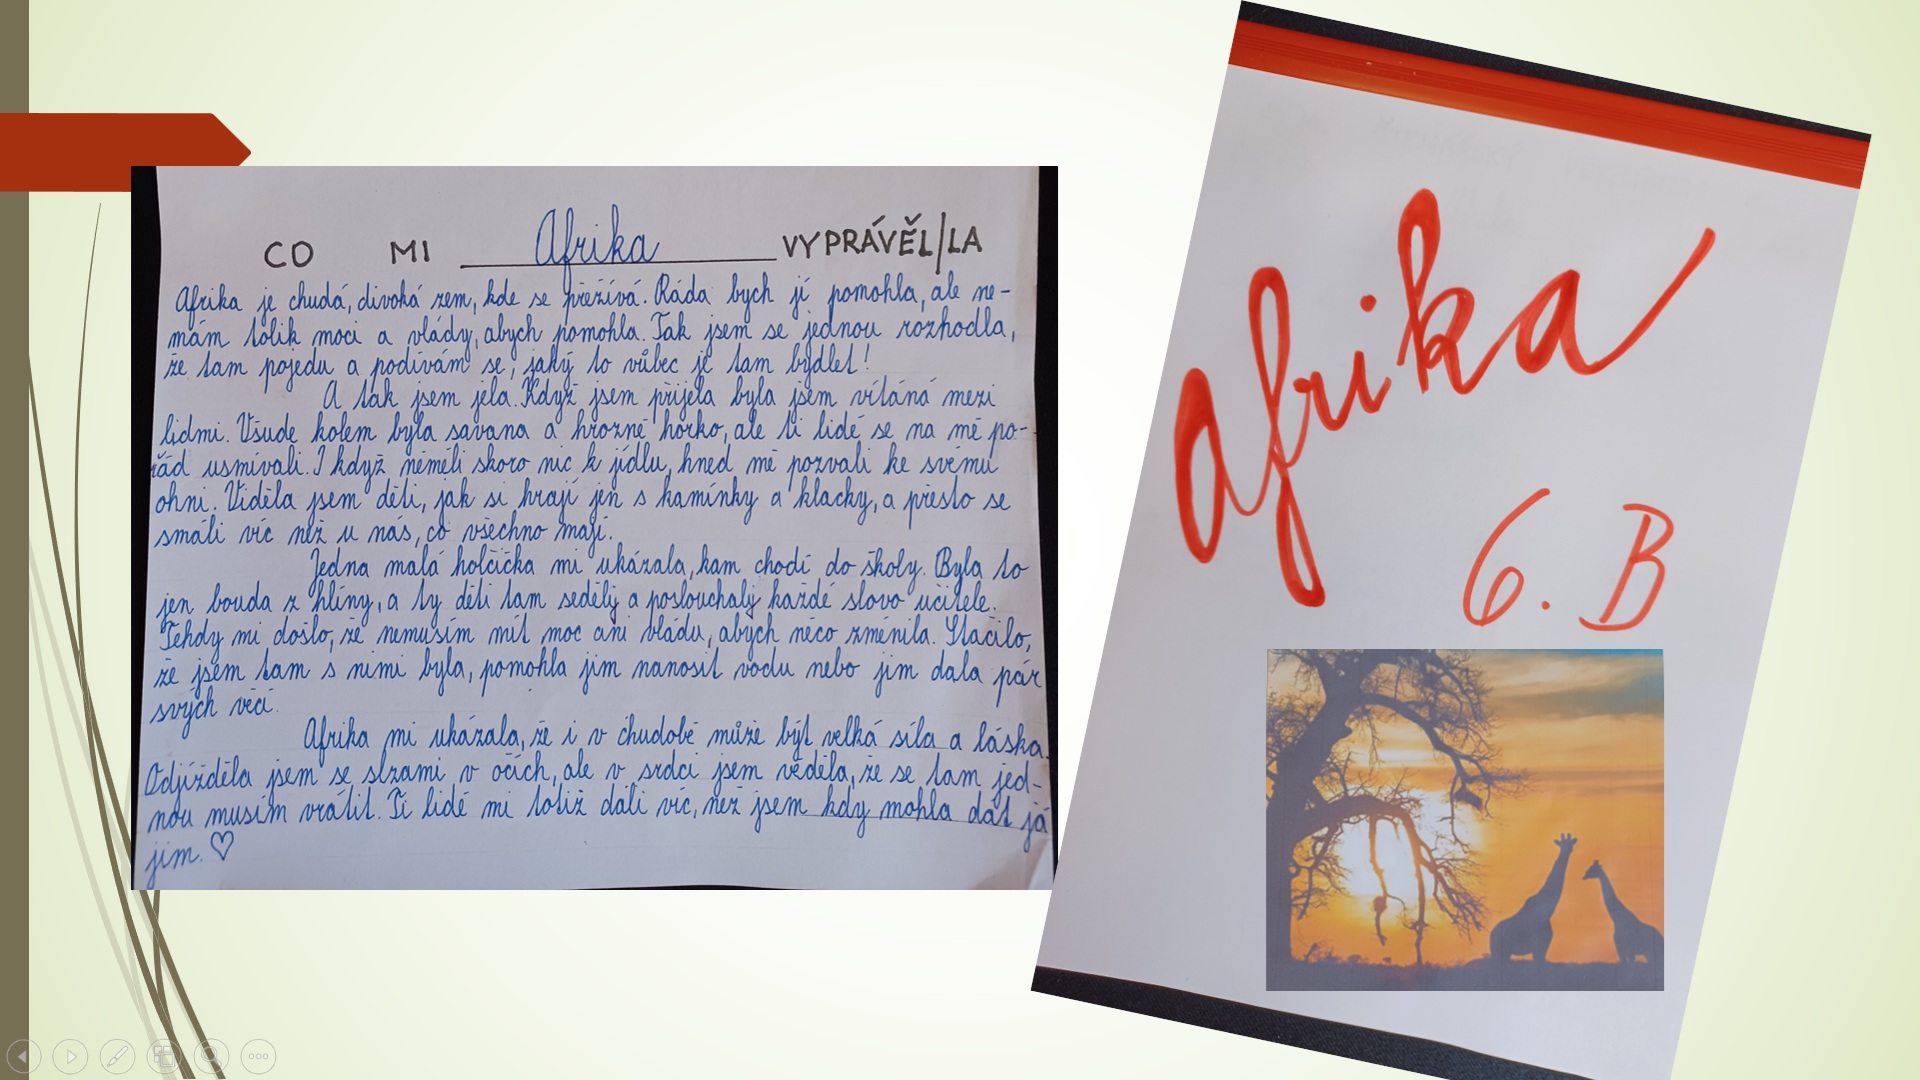 CO MI Afrika VYPRÁVĚL/LA
Afrika je chudá, divoká zem, kde se přežívá. Ráda bych jí pomohla, ale ne-
mám tolik moci a vlády, abych pomohla. Tak jsem se jednou rozhodla,
že tam pojedu a podívám se, jaký to vůbec je tam bydlet!
A tak jsem jela. Když jsem přijela byla jsem vítáná mezi
lidmi. Všude kolem byla savana a hrozné horko, ale ti lidé se na mě po-
řád usmívali. I když neměli skoro nic k jídlu, hned mě pozvali ke svému
ohni. Viděla jsem děti, jak si hrají jen s kamínky a klacky, a přesto se
smáli víc než u nás, co všechno mají.
Jedna malá holčička mi ukázala, kam chodí do školy. Byla to
jen bouda z hlíny, a ty děti tam seděly a poslouchaly každé slovo učitele.
Tehdy mi došlo, že nemusím mít moc ani vládu, abych něco změnila. Stačilo,
že jsem tam s nimi byla, pomohla jim nanosit vodu nebo jim dala pár
svých věcí.
Afrika mi ukázala, že i v chudobě může být velká síla a láska.
Odjížděla jsem se slzami v očích, ale v srdci jsem věděla, že se tam jed-
nou musím vrátit. Ti lidé mi totiž dali víc, než jsem kdy mohla dát já
jim. ♡
Afrika
6. B